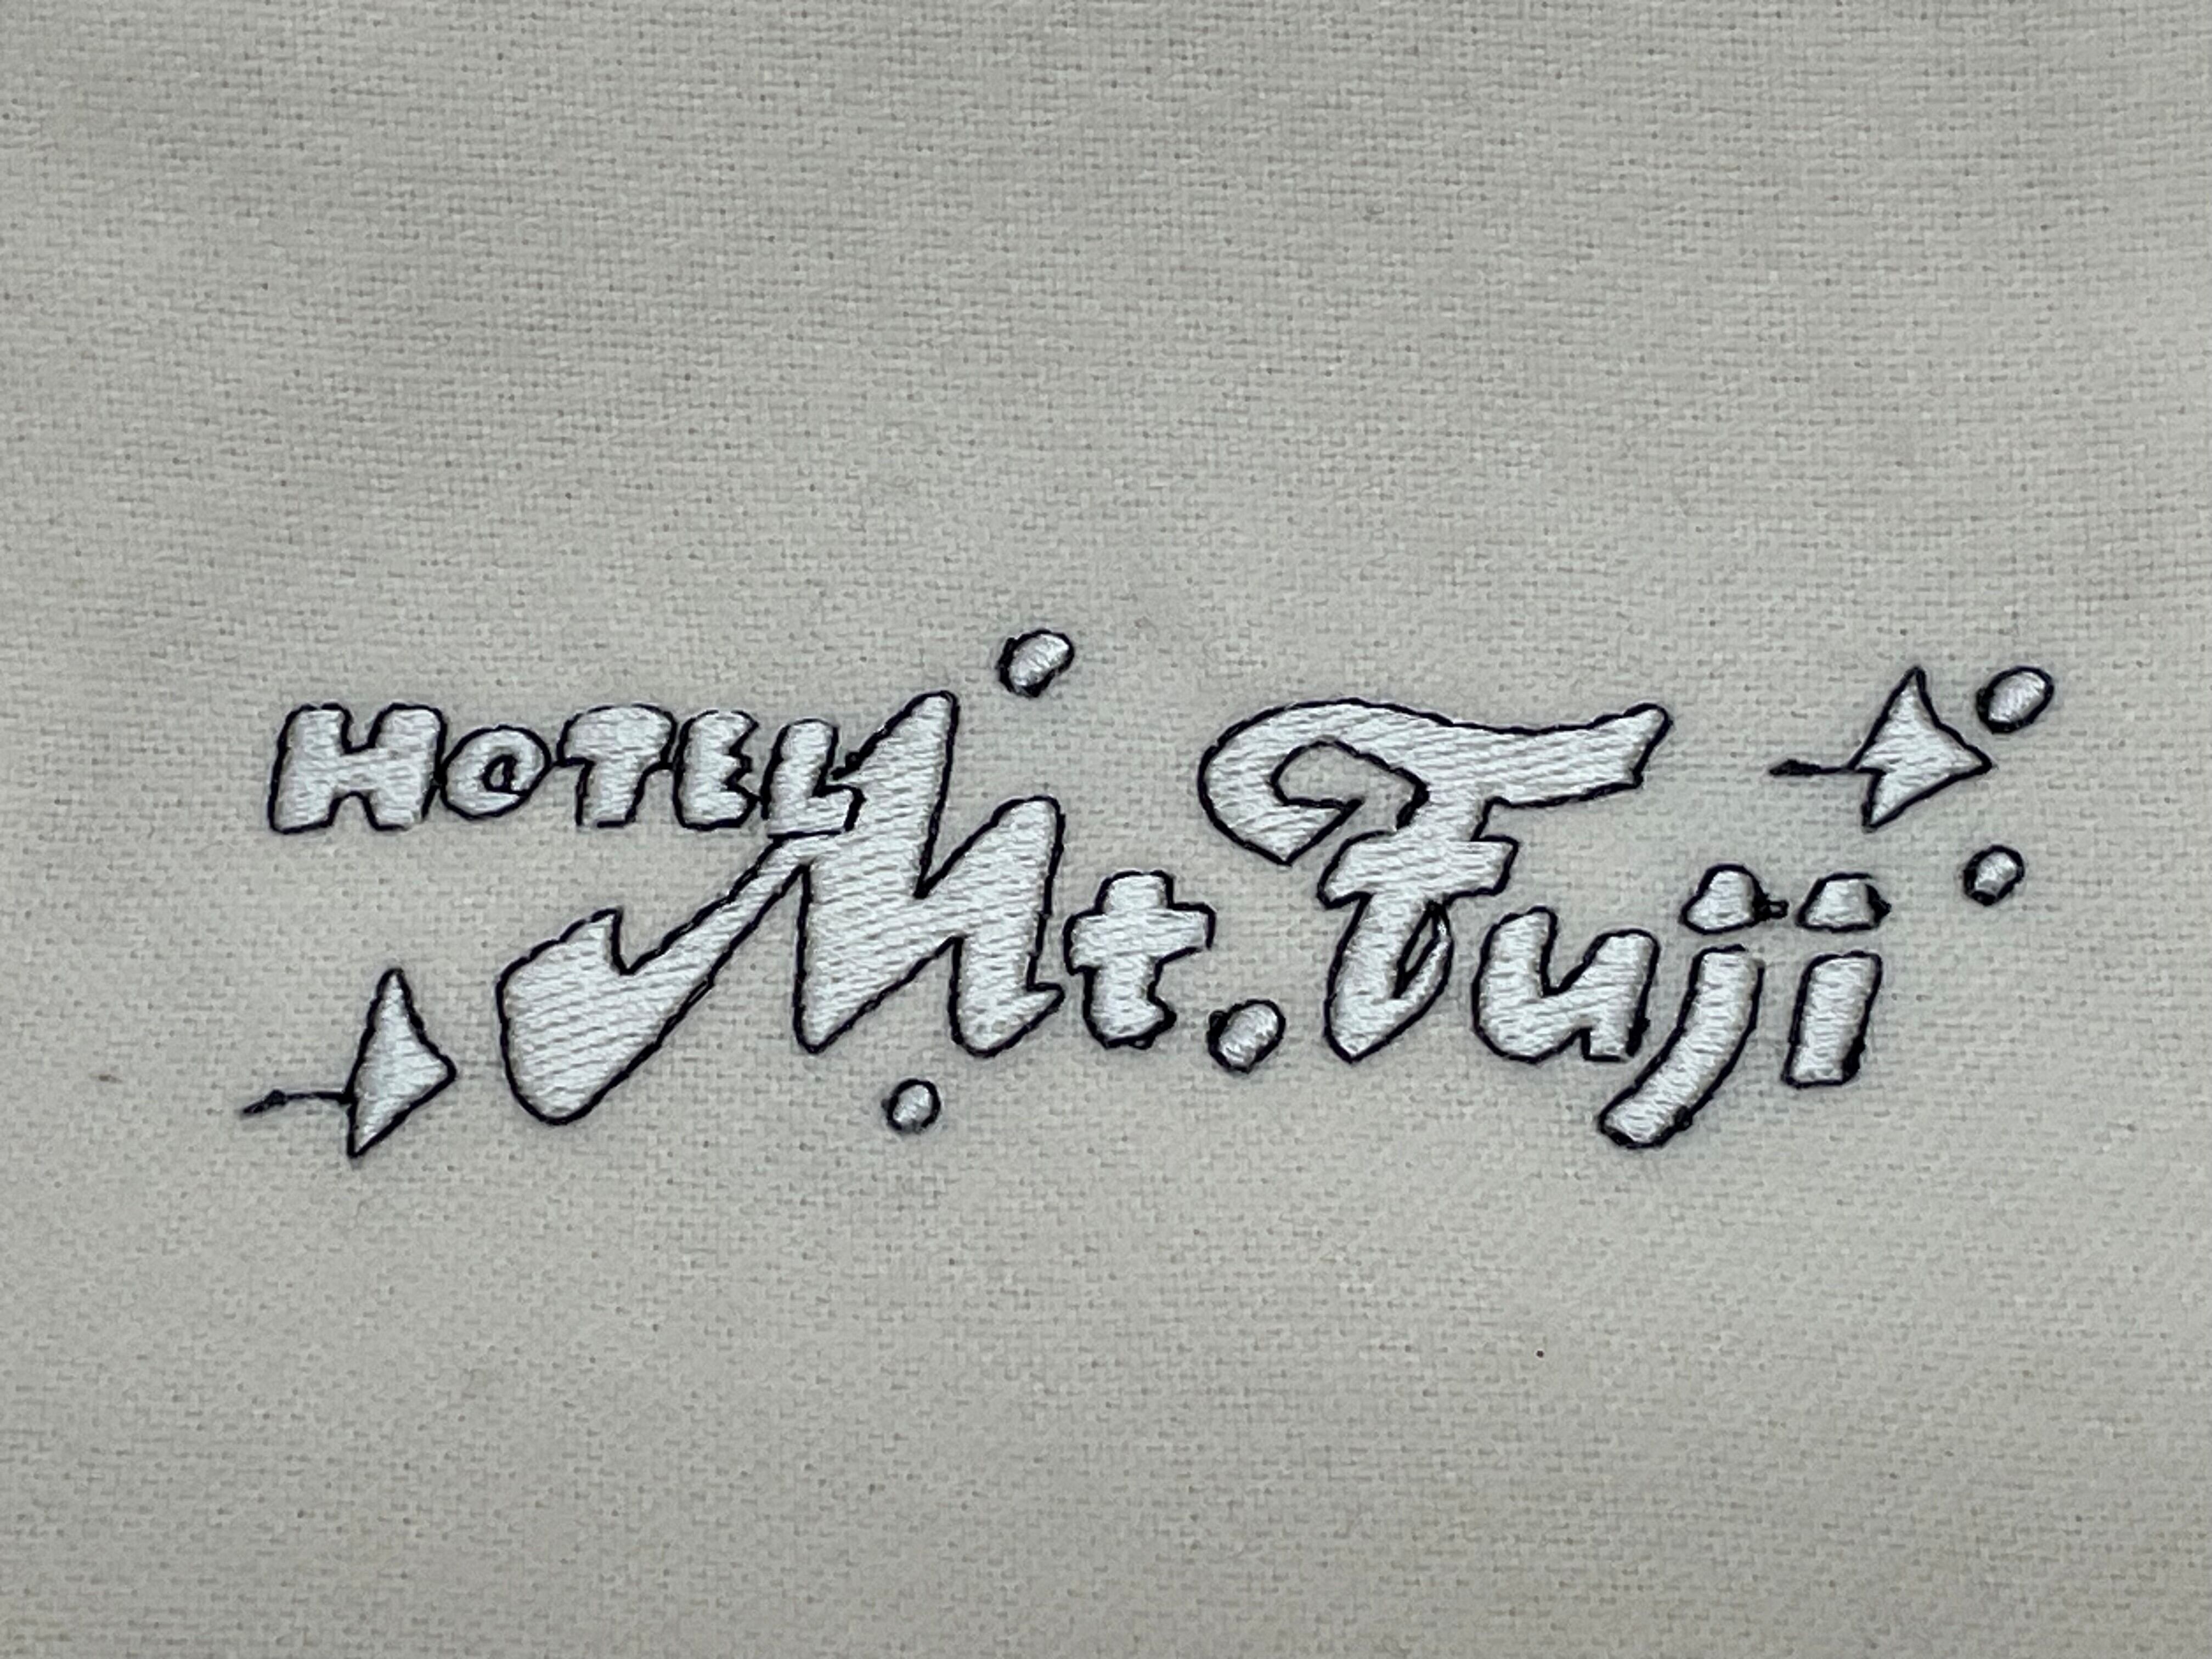 HOTEL
Mt. Fuji